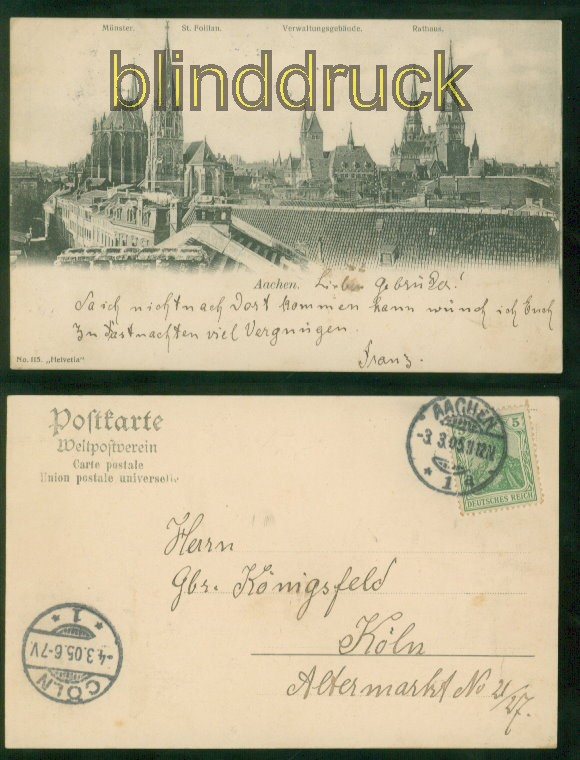 Münster. St. Foillan. Verwaltungsgebäude. Rathaus.
blinddruck
Aachen. Liebe Gebrüder!
Da ich nicht nach Dort kommen kann wünsch ich Euch
zu Fastnachten viel Vergnügen.
Franz.
No. 115. „Helvetia“
Postkarte
Weltpostverein
Carte postale
Union postale universelle
AACHEN
-3.3.05.11-12V
* 1 a
5
DEUTSCHES REICH
Herrn
Gbr. Königsfeld
Köln
Altermarkt No 21/27.
* 1 *
-4.3.05.6-7V.
CÖLN